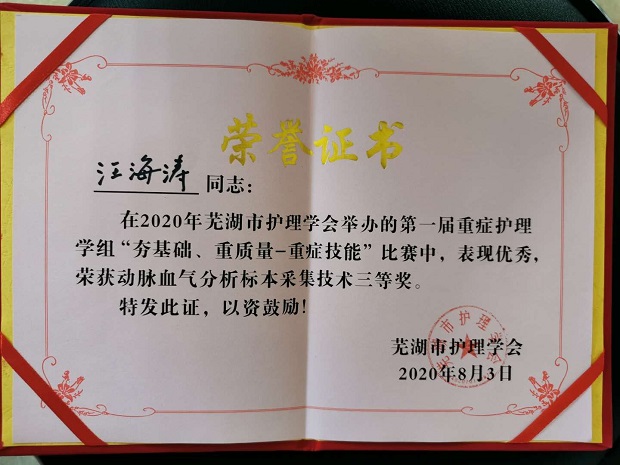 荣誉证书
汪海涛 同志：
在2020年芜湖市护理学会举办的第一届重症护理
学组“夯基础、重质量-重症技能”比赛中，表现优秀，
荣获动脉血气分析标本采集技术三等奖。
特发此证，以资鼓励！
芜湖市护理学会
2020年8月3日
芜湖市护理学会